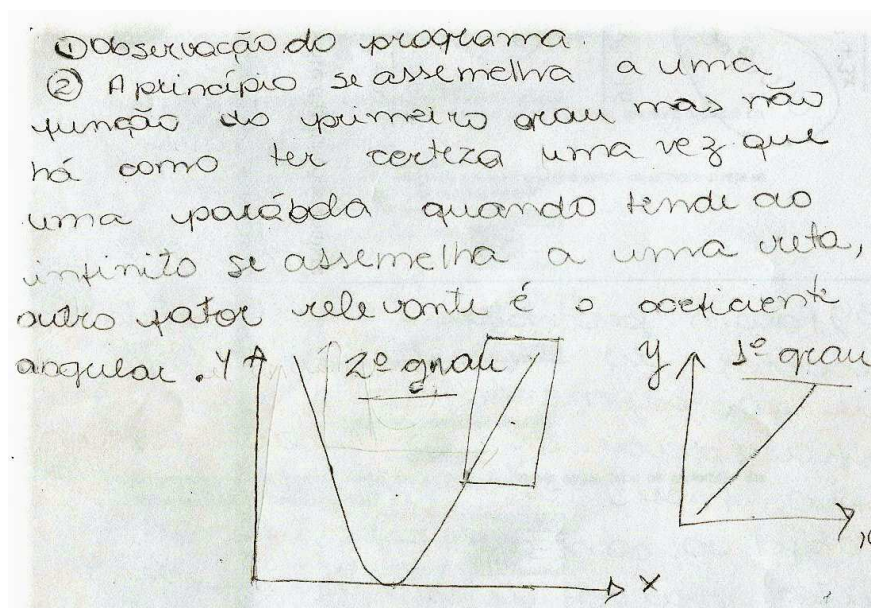 ① Observação do programa.
② A princípio se assemelha a uma
função do primeiro grau mas não
há como ter certeza uma vez que
uma parábola quando tende ao
infinito se assemelha a uma reta,
outro fator relevante é o coeficiente
angular.
Y 2º grau
X
Y 1º grau
X